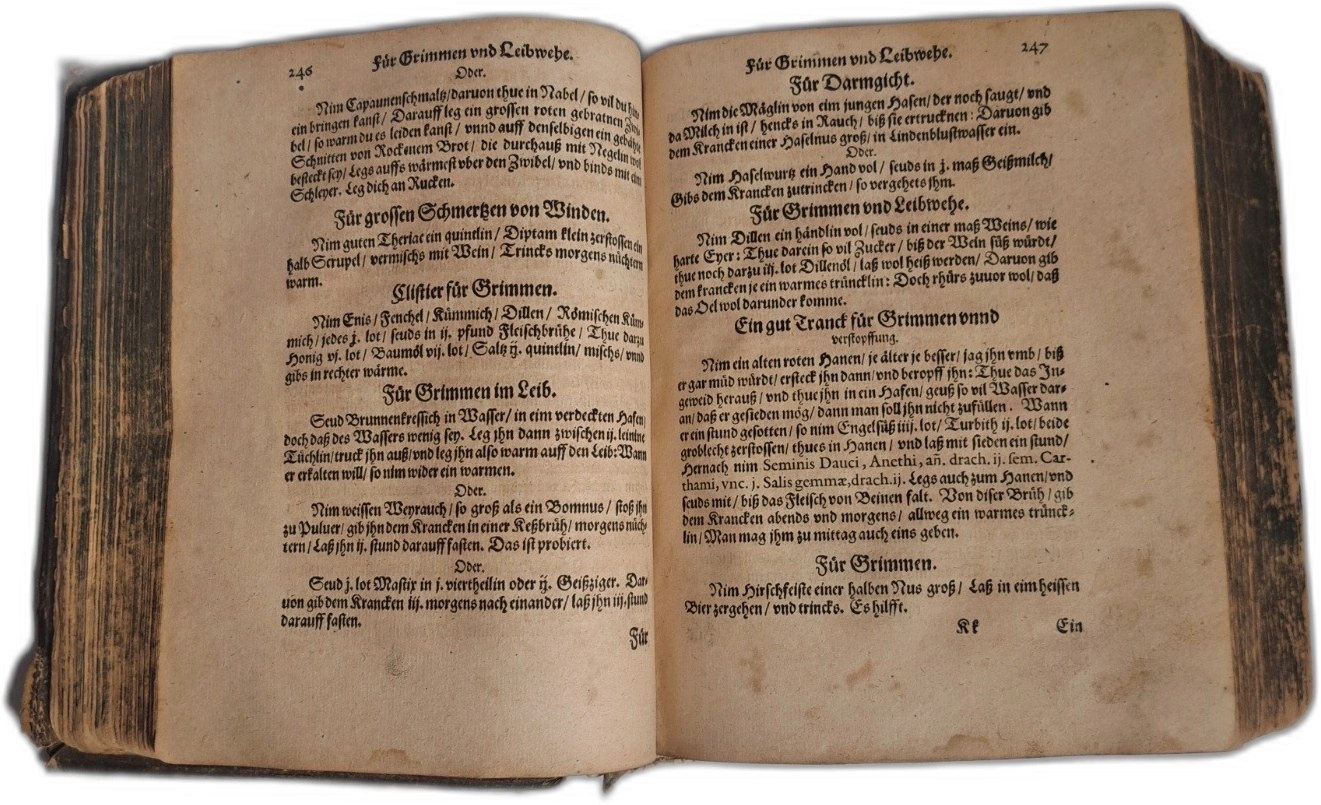 246
Für Grimmen vnd Leibwehe.
Oder.
Nim Capaunenschmaltz/ daruon thue in Nabel/ so vil du
ein bringen kanst/ Darauff leg ein grossen roten gebratnen Zwi-
bel/ so warm du es leiden kanst/ vnnd auff denselbigen ein
Schnitten von Rockenem Brot/ die durchauß mit Negelin wol
besteckt sey/ Legs auffs wärmest vber den Zwibel/ vnd binds mit eim
Schleyer. Leg dich an Rucken.
Für grossen Schmertzen von Winden.
Nim guten Theriac ein quintlin/ Diptam klein zerstossen ein
halb Scrupel/ vermischs mit Wein/ Trincks morgens nüchtern
warm.
Clistier für Grimmen.
Nim Enis/ Fenchel/ Kümmich/ Dillen/ Römischen Küm-
mich/ jedes j. lot/ seuds in ij. pfund Fleischbrühe/ Thue darzu
Honig vj. lot/ Baumöl vij. lot/ Saltz ij. quintlin/ mischs/ vnnd
gibs in rechter wärme.
Für Grimmen im Leib.
Seud Brunnenkressich in Wasser/ in eim verdeckten Hafen/
doch daß des Wassers wenig sey. Leg jhn dann zwischen ij. leinine
Tüchlin/ truck jhn auß/ vnd leg jhn also warm auff den Leib: Wann
er erkalten will/ so nim wider ein warmen.
Oder.
Nim weissen Weyrauch/ so groß als ein Bomnus/ stoß jhn
zu Puluer/ gib jhn dem Krancken in einer Keßbrüh/ morgens nüch-
tern/ Laß jhn ij. stund darauff fasten. Das ist probiert.
Oder.
Seud j. lot Mastix in j. viertheilin oder ij. Geißziger. Dar-
uon gib dem Krancken iij. morgens nach einander/ laß jhn iij. stund
darauff fasten.
Für
Für Grimmen vnd Leibwehe.
247
Für Darmgicht.
Nim die Mäglin von eim jungen Hasen/ der noch saugt/ vnd
da Milch in ist/ hencks in Rauch/ biß sie ertrucknen: Daruon gib
dem Krancken einer Haselnus groß/ in Lindenblustwasser ein.
Oder.
Nim Haselwurtz ein Hand vol/ seuds in j. maß Geißmilch/
Gibs dem Krancken zutrincken/ so vergehets jhm.
Für Grimmen vnd Leibwehe.
Nim Dillen ein händlin vol/ seuds in einer maß Weins/ wie
harte Eyer: Thue darein so vil Zucker/ biß der Wein süß würdt/
thue noch darzu iij. lot Dillenöl/ laß wol heiß werden/ Daruon gib
dem krancken je ein warmes trüncklin: Doch rhürs zuuor wol/ daß
das Oel wol darunder komme.
Ein gut Tranck für Grimmen vnnd
verstopffung.
Nim ein alten roten Hanen/ je älter je besser/ jag jhn vmb/ biß
er gar müd würdt/ ersteck jhn dann/ vnd beropff jhn: Thue das In-
geweid herauß/ vnd thue jhn in ein Hafen/ geuß so vil Wasser dar-
an/ daß er gesieden mög/ dann man soll jhn nicht zufüllen. Wann
er ein stund gesotten/ so nim Engelsüß iiij. lot/ Turbith ij. lot/ beide
groblecht zerstossen/ thues in Hanen/ vnd laß mit sieden ein stund/
Hernach nim Seminis Dauci, Anethi, añ. drach. ij. sem. Car-
thami, vnc. j. Salis gemmæ, drach. ij. Legs auch zum Hanen/ vnd
seuds mit/ biß das Fleisch von Beinen falt. Von diser Brüh/ gib
dem Krancken abends vnd morgens/ allweg ein warmes trünck-
lin/ Man mag jhm zu mittag auch eins geben.
Für Grimmen.
Nim Hirschfeiste einer halben Nus groß/ Laß in eim heissen
Bier zergehen/ vnd trincks. Es hilfft.
Kk Ein